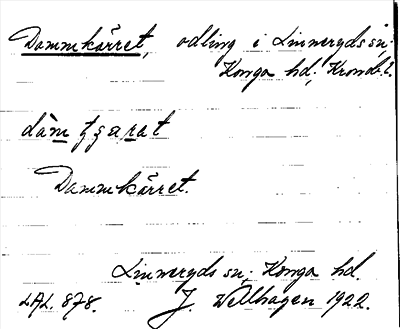 Dammkärret, odling i Linneryds sn;
Konga hd; Kronob. l.
dàm tʒærat
Dammkärret.
Linneryds sn; Konga hd.
LAL. 878. J. Wellhagen 1922.